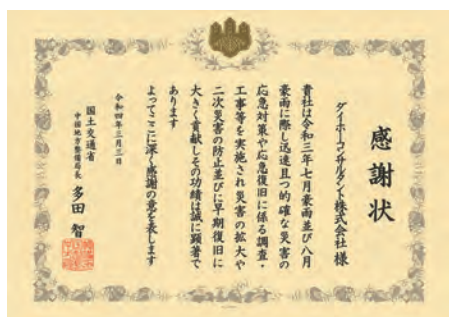 感謝状
ダイホーコンサルタント株式会社 様
貴社は令和三年七月豪雨並び八月
豪雨に際し迅速且つ的確な災害の
応急対策や応急復旧に係る調査・
工事等を実施され災害の拡大や
二次災害の防止並びに早期復旧に
大きく貢献しその功績は誠に顕著で
あります
よってここに深く感謝の意を表します
令和四年三月三日
国土交通省
中国地方整備局長 多田 智